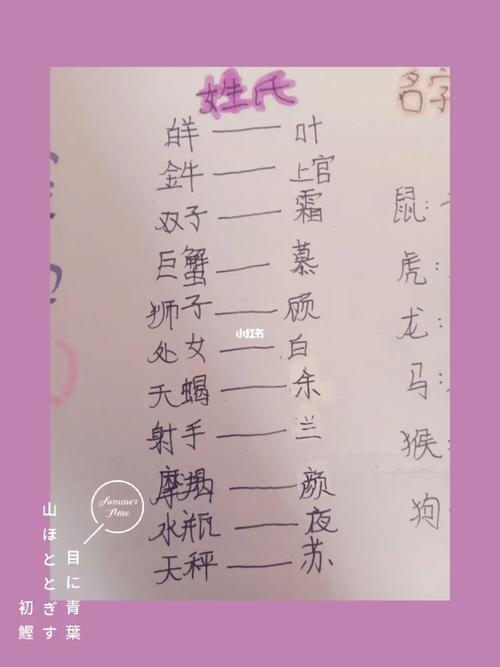 姓氏
名字
白羊——叶
金牛——上官
双子——霜
巨蟹——慕
狮子——顾
处女——白
天蝎——余
射手——兰
摩羯——颜
水瓶——夜
天秤——苏
鼠：
虎：
龙：
马：
猴：
狗
小红书
Summer Time
目に青葉
山ほととぎす
初鰹